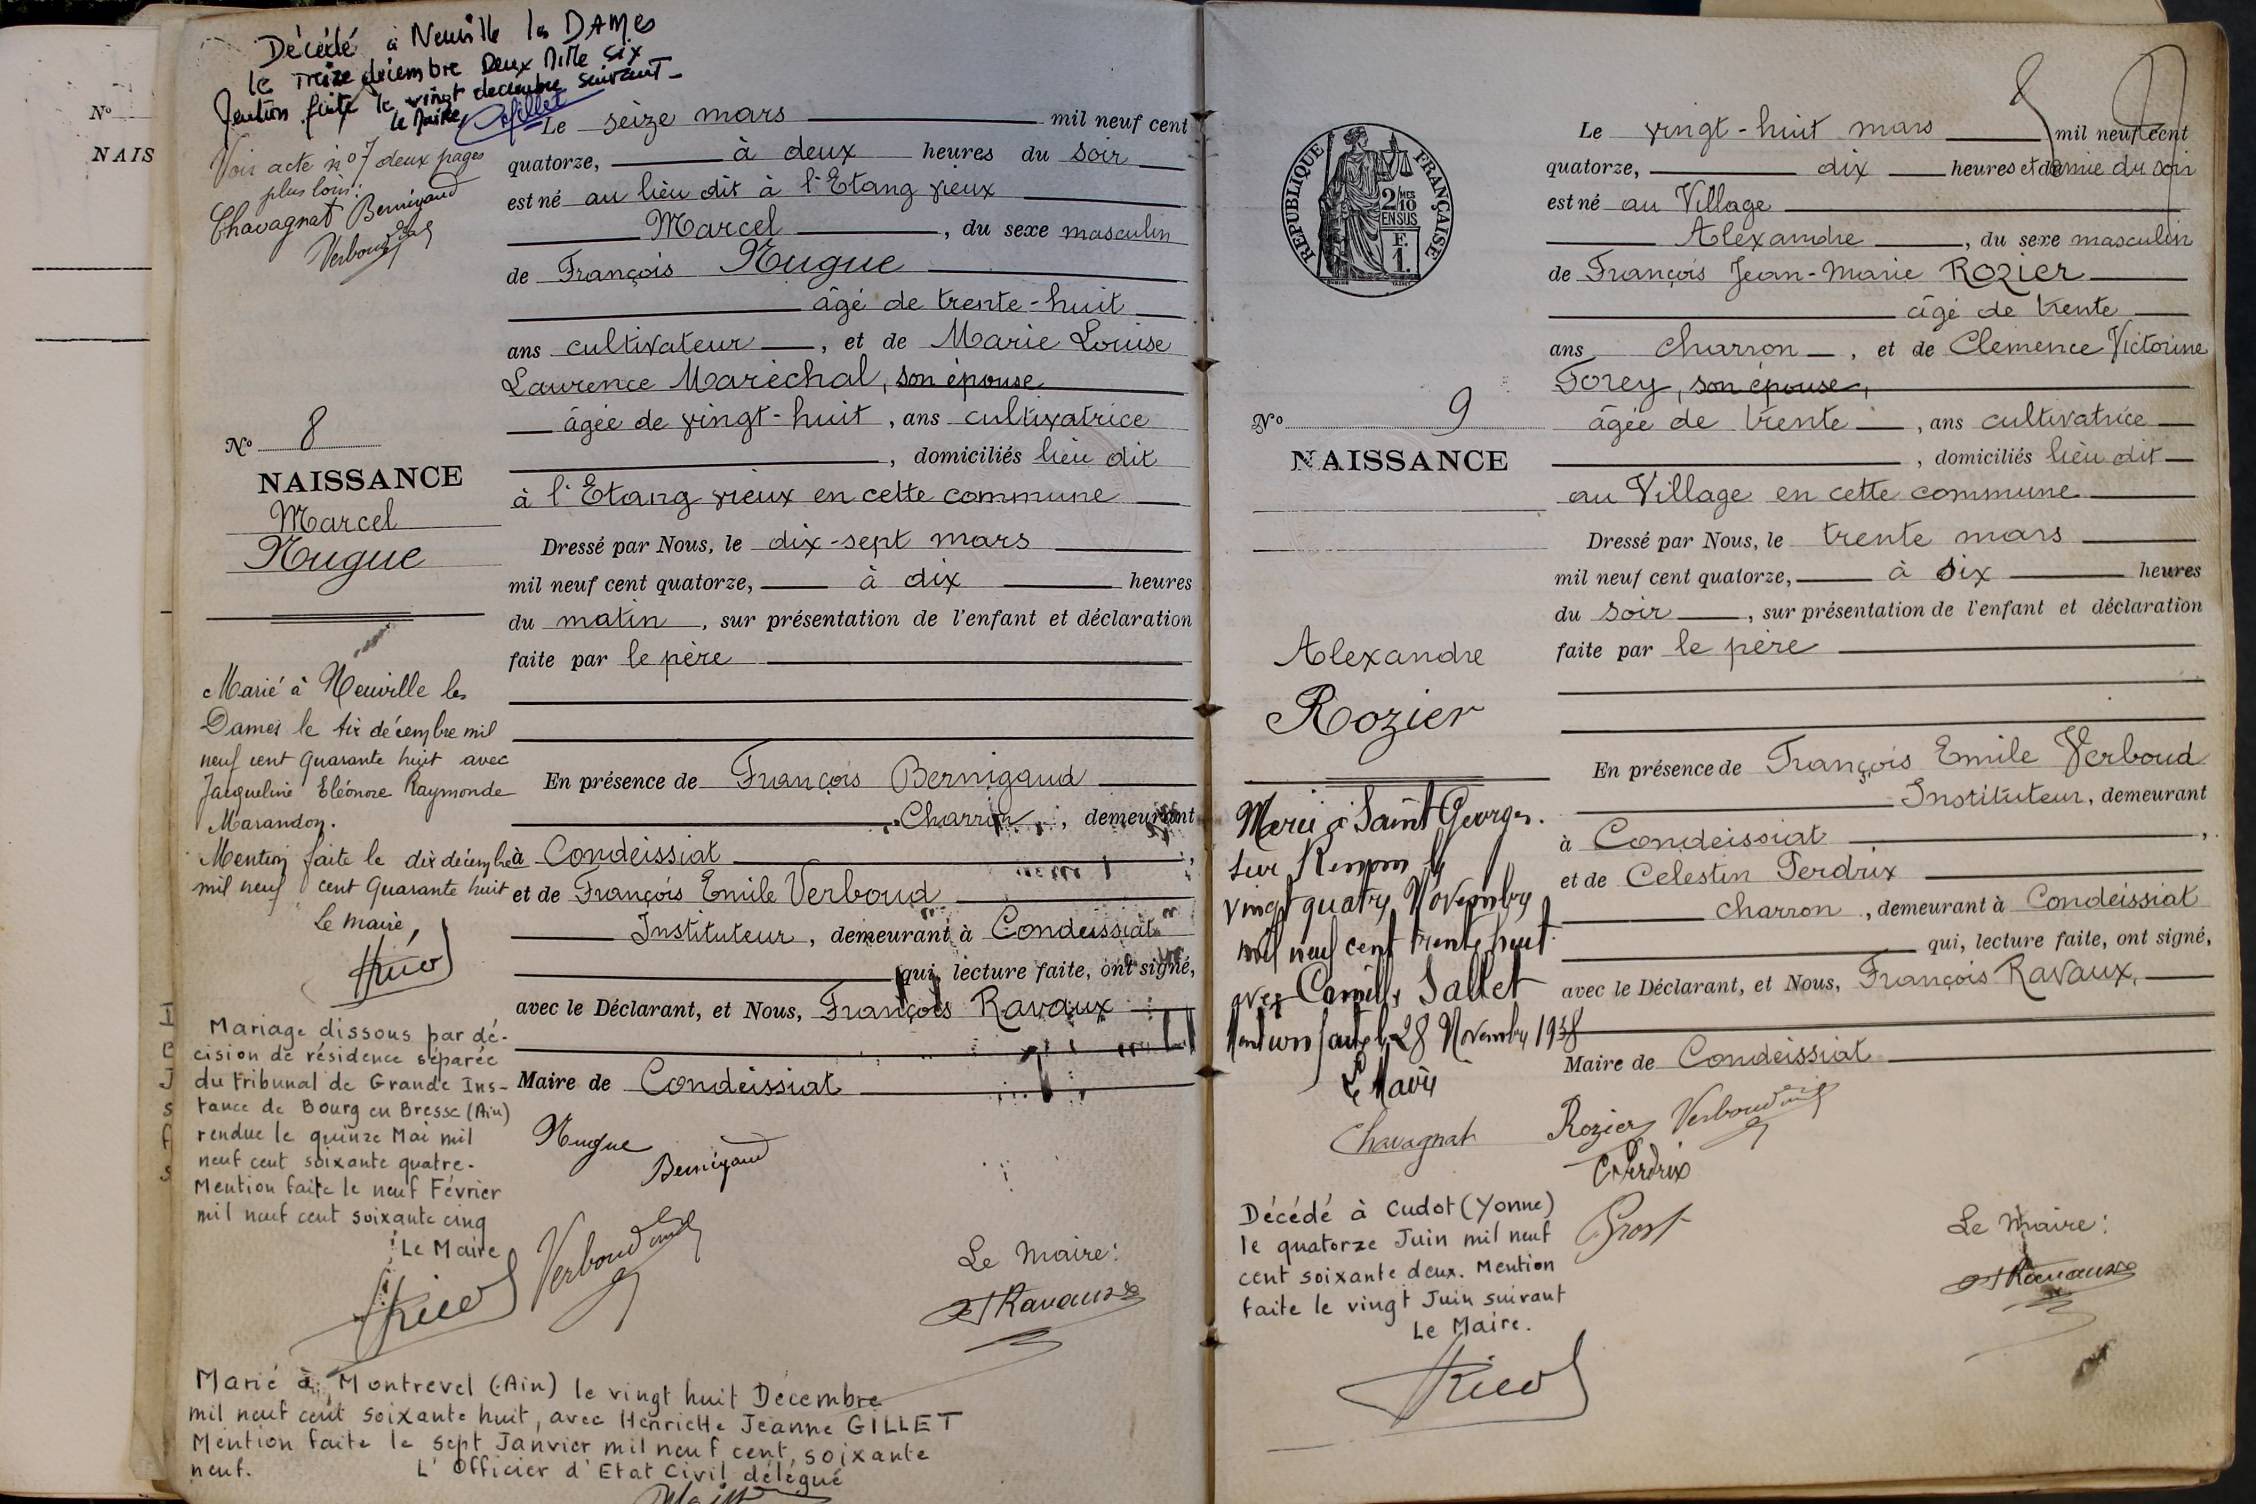 Nº
NAIS
Décédé à Neuville les DAMES
le Treize décembre Deux Mille six
Mention faite le vingt decembre suivant
le Maire,
Voir acte nº 7 deux pages
plus loin:
Chavagnat Bernigaud
Verboud
Nº 8
NAISSANCE
Marcel
Nugue
Marié à Neuville les
Dames le dix décembre mil
neuf cent quarante huit avec
Jacqueline Eléonore Raymonde
Marandon.
Mention faite le dix décembre
mil neuf cent quarante huit
Le maire,
Mariage dissous par dé-
cision de résidence séparée
du tribunal de Grande Ins-
tance de Bourg en Bresse (Ain)
rendue le quinze Mai mil
neuf cent soixante quatre.
Mention faite le neuf Février
mil neuf cent soixante cinq
Le Maire
Le seize mars mil neuf cent
quatorze, à deux heures du soir
est né au lieu dit à l'Etang vieux
Marcel, du sexe masculin
de François Nugue
âgé de trente-huit
ans cultivateur, et de Marie Louise
Laurence Maréchal, son épouse
âgée de vingt-huit, ans cultivatrice
, domiciliés lieu dit
à l'Etang vieux en cette commune
Dressé par Nous, le dix-sept mars
mil neuf cent quatorze, à dix heures
du matin, sur présentation de l'enfant et déclaration
faite par le père
En présence de François Bernigaud
Charron, demeurant
à Condeissiat,
et de François Emile Verboud
Instituteur, demeurant à Condeissiat
qui, lecture faite, ont signé,
avec le Déclarant, et Nous, François Ravaux
Maire de Condeissiat
Nugue
Bernigaud
Verboud
Le Maire:
Ravaux
Marié à Montrevel (Ain) le vingt huit Decembre
mil neuf cent soixante huit, avec Henriette Jeanne GILLET
Mention faite le sept Janvier mil neuf cent, soixante
neuf. L'Officier d'Etat Civil délégué
RÉPUBLIQUE FRANÇAISE
2/10 MES
EN SUS
F.
1.
Nº 9
NAISSANCE
Alexandre
Rozier
Marié à Saint Georges
sur Renom le
vingt quatre Novembre
mil neuf cent trente huit
avec Camille Sallet
Mention faite le 28 Novembre 1938
Le Maire
Chavagnat
Décédé à Cudot (Yonne)
le quatorze Juin mil neuf
cent soixante deux. Mention
faite le vingt Juin suivant
Le Maire.
Le vingt-huit mars mil neuf cent
quatorze, dix heures et demie du soir
est né au Village
Alexandre, du sexe masculin
de François Jean-Marie ROZIER
âgé de trente
ans charron, et de Clemence Victorine
Forey, son épouse,
âgée de trente, ans cultivatrice
, domiciliés lieu dit
au Village en cette commune
Dressé par Nous, le trente mars
mil neuf cent quatorze, à six heures
du soir, sur présentation de l'enfant et déclaration
faite par le père
En présence de François Emile Verboud
Instituteur, demeurant
à Condeissiat,
et de Celestin Perdrix
charron, demeurant à Condeissiat
qui, lecture faite, ont signé,
avec le Déclarant, et Nous, François Ravaux,
Maire de Condeissiat
Rozier Verboud
C Perdrix
Prost
Le Maire:
Ravaux